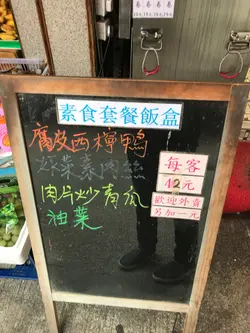 素食套餐飯盒
腐皮西檸鴨
炸菜素肉絲
肉片炒青瓜
油菜
每客
42元
歡迎外賣
另加一元